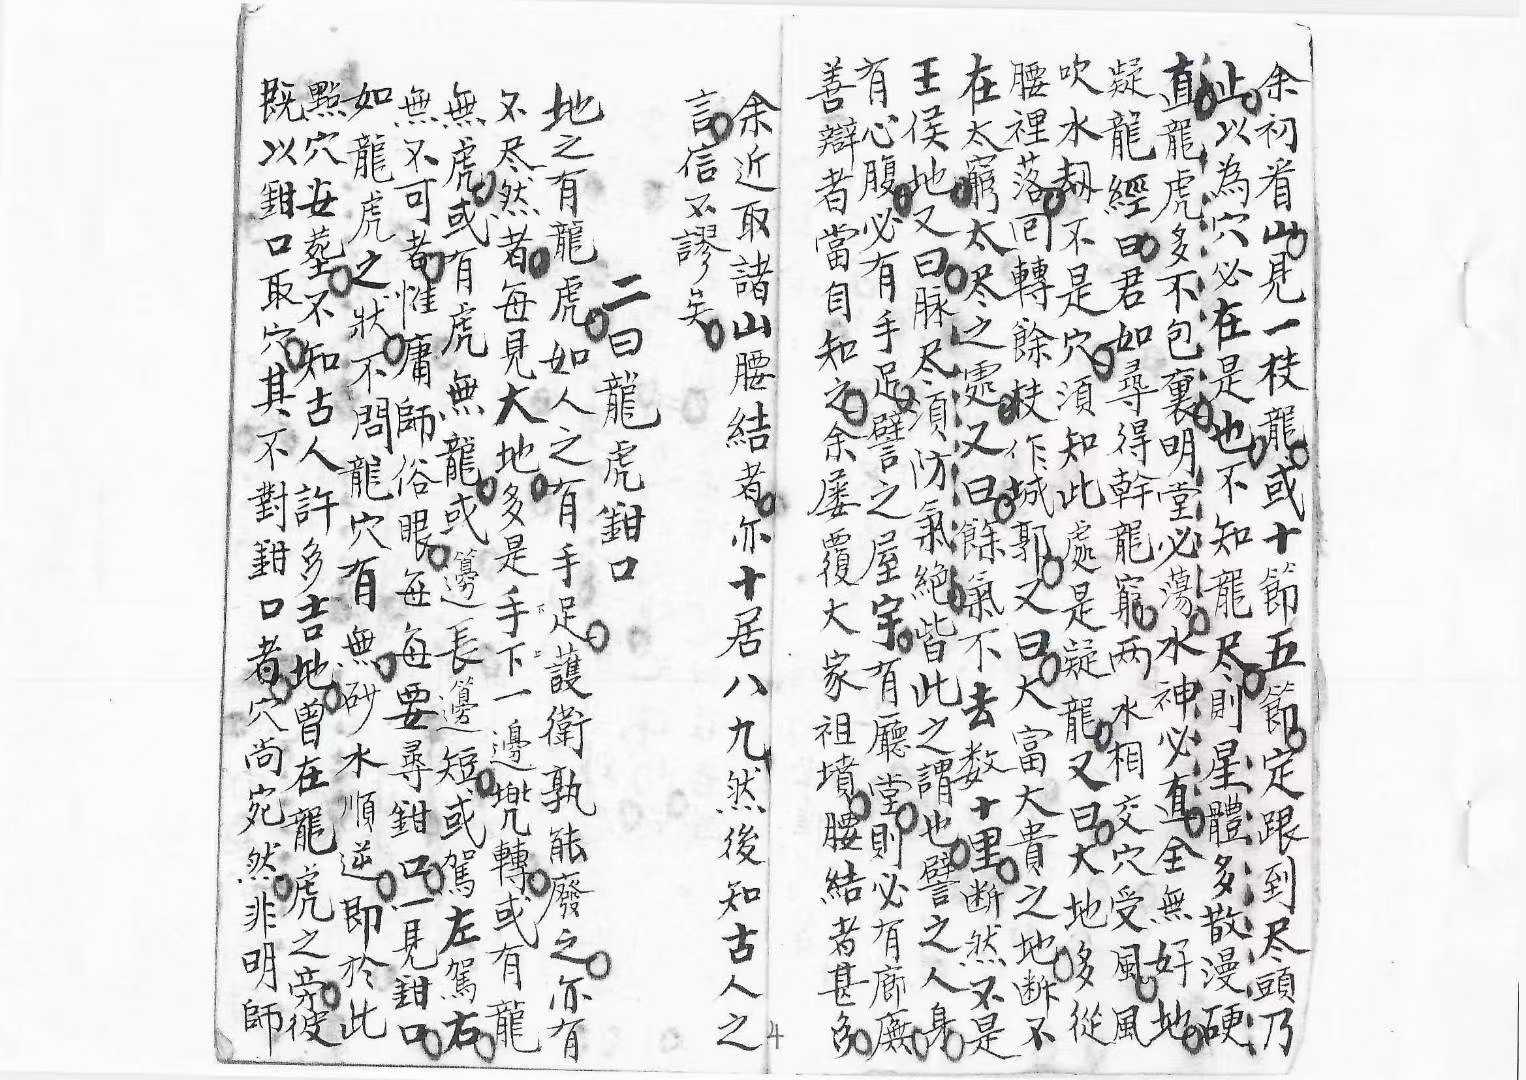 余初看山見一枝龍或十節五節定跟到尽頭乃
止以為穴必在是也不知龍尽則星體多散漫硬
直龍虎多不包裹明堂必蕩水神必直全無好地
疑龍經曰君如尋得幹龍窮两水相交穴受風風
吹水刼不是穴須知此處是疑龍又曰大地多從
腰裡落回轉餘枝作城郭又曰大富大貴之地断不
在太窮太尽之處又曰餘氣不去数十里断然不是
王侯地又曰脉尽須防氣絕皆此之謂也譬之人身
有心腹必有手足譬之屋宇有廳堂則必有廊廡
善辯者當自知之余屡覆大家祖墳腰結者甚多
余近取諸山腰結者亦十居八九然後知古人之
言信不謬矣
二曰龍虎鉗口
地之有龍虎如人之有手足護衛孰能廢之亦有
不尽然者每見大地多是手下一邊兠轉或有龍
無虎或有虎無龍或邊長邊短或駕左駕右
無不可者惟庸師俗眼每每要尋鉗口一見鉗口
如龍虎之狀不問龍穴有無砂水順逆即於此
點穴安葬不知古人許多吉地曾在龍虎之旁彼
既以鉗口取穴其不對鉗口者穴尚宛然非明師
4